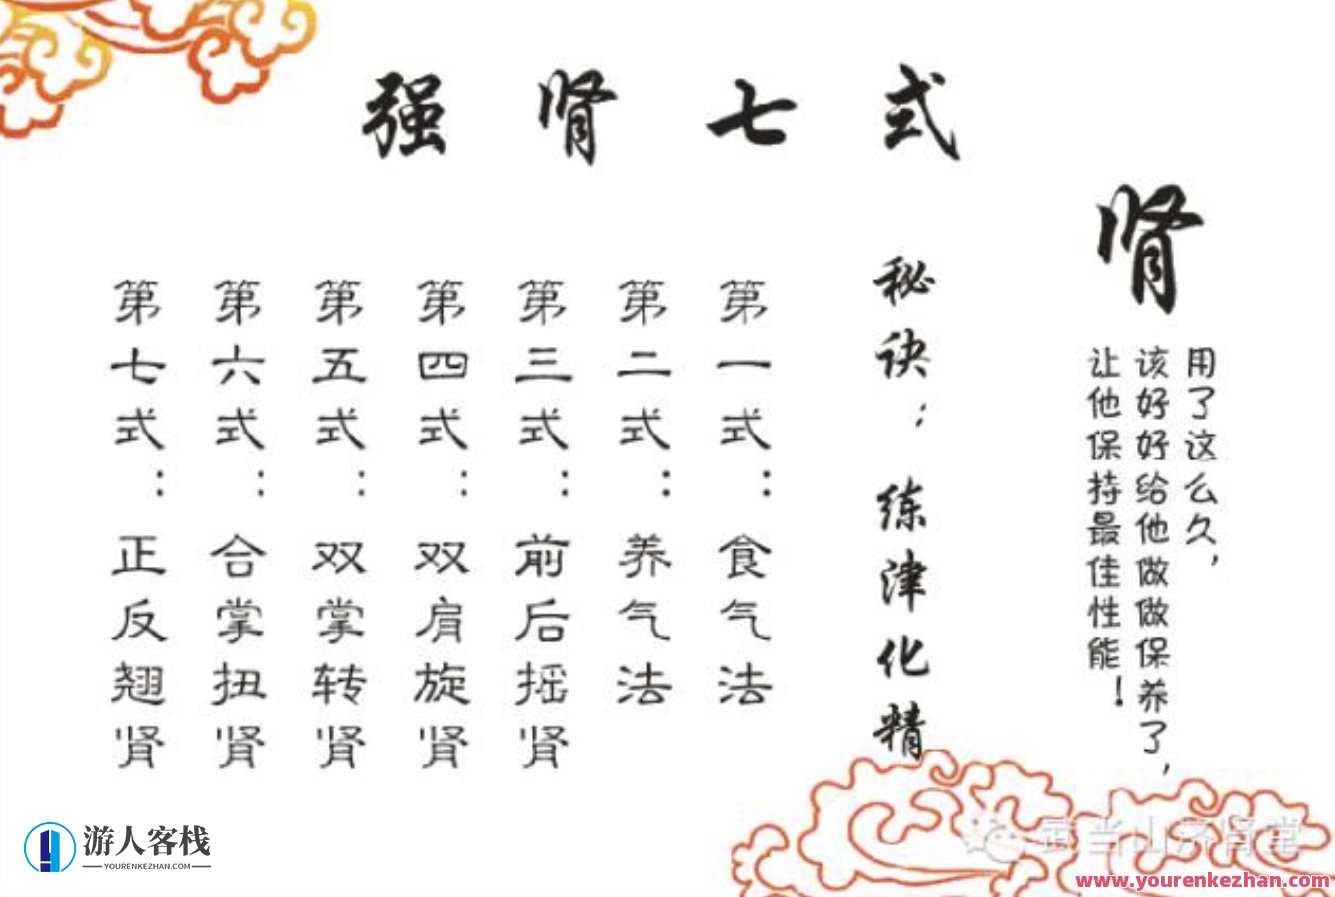 强肾七式
肾
用了这么久，
该好好给他做做保养了，
让他保持最佳性能！
秘诀：练津化精
第一式：食气法
第二式：养气法
第三式：前后摇肾
第四式：双肩旋肾
第五式：双掌转肾
第六式：合掌扭肾
第七式：正反翘肾
游人客栈
YOURENKEZHAN.COM
武当山济肾堂
www.yourenkezhan.com